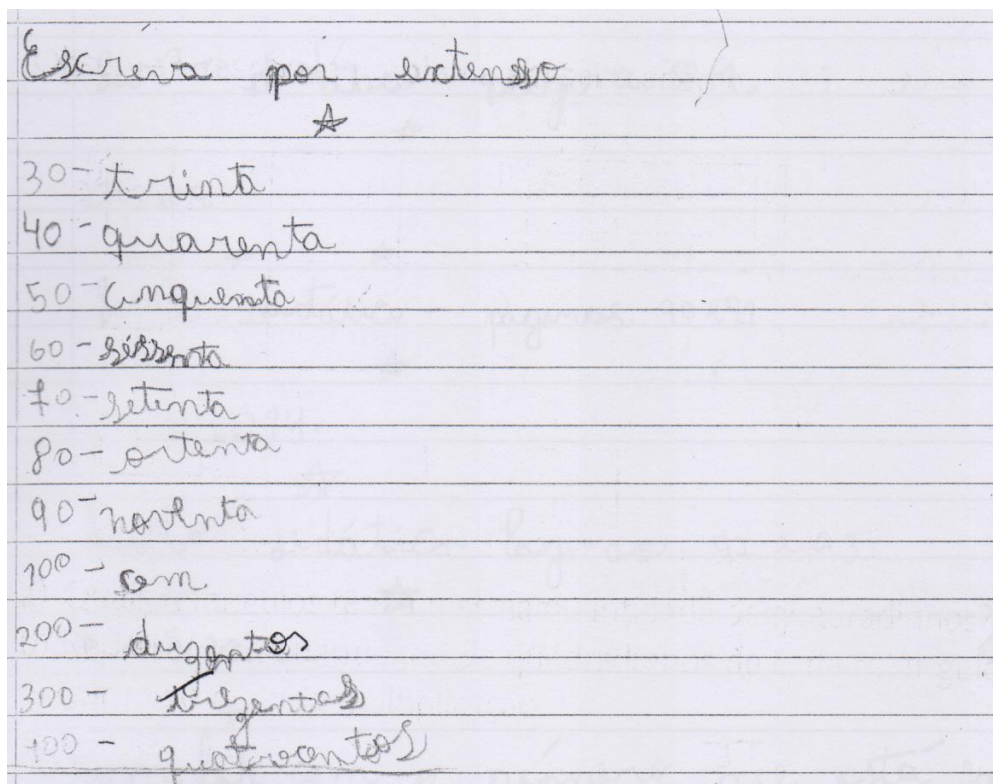 Escreva por extenso
30-trinta
40-quarenta
50-cinquenta
60-sissenta
70-setenta
80-ortenta
90-noventa
100-sem
200-duzentos
300-trezentos
400-quatrocentos